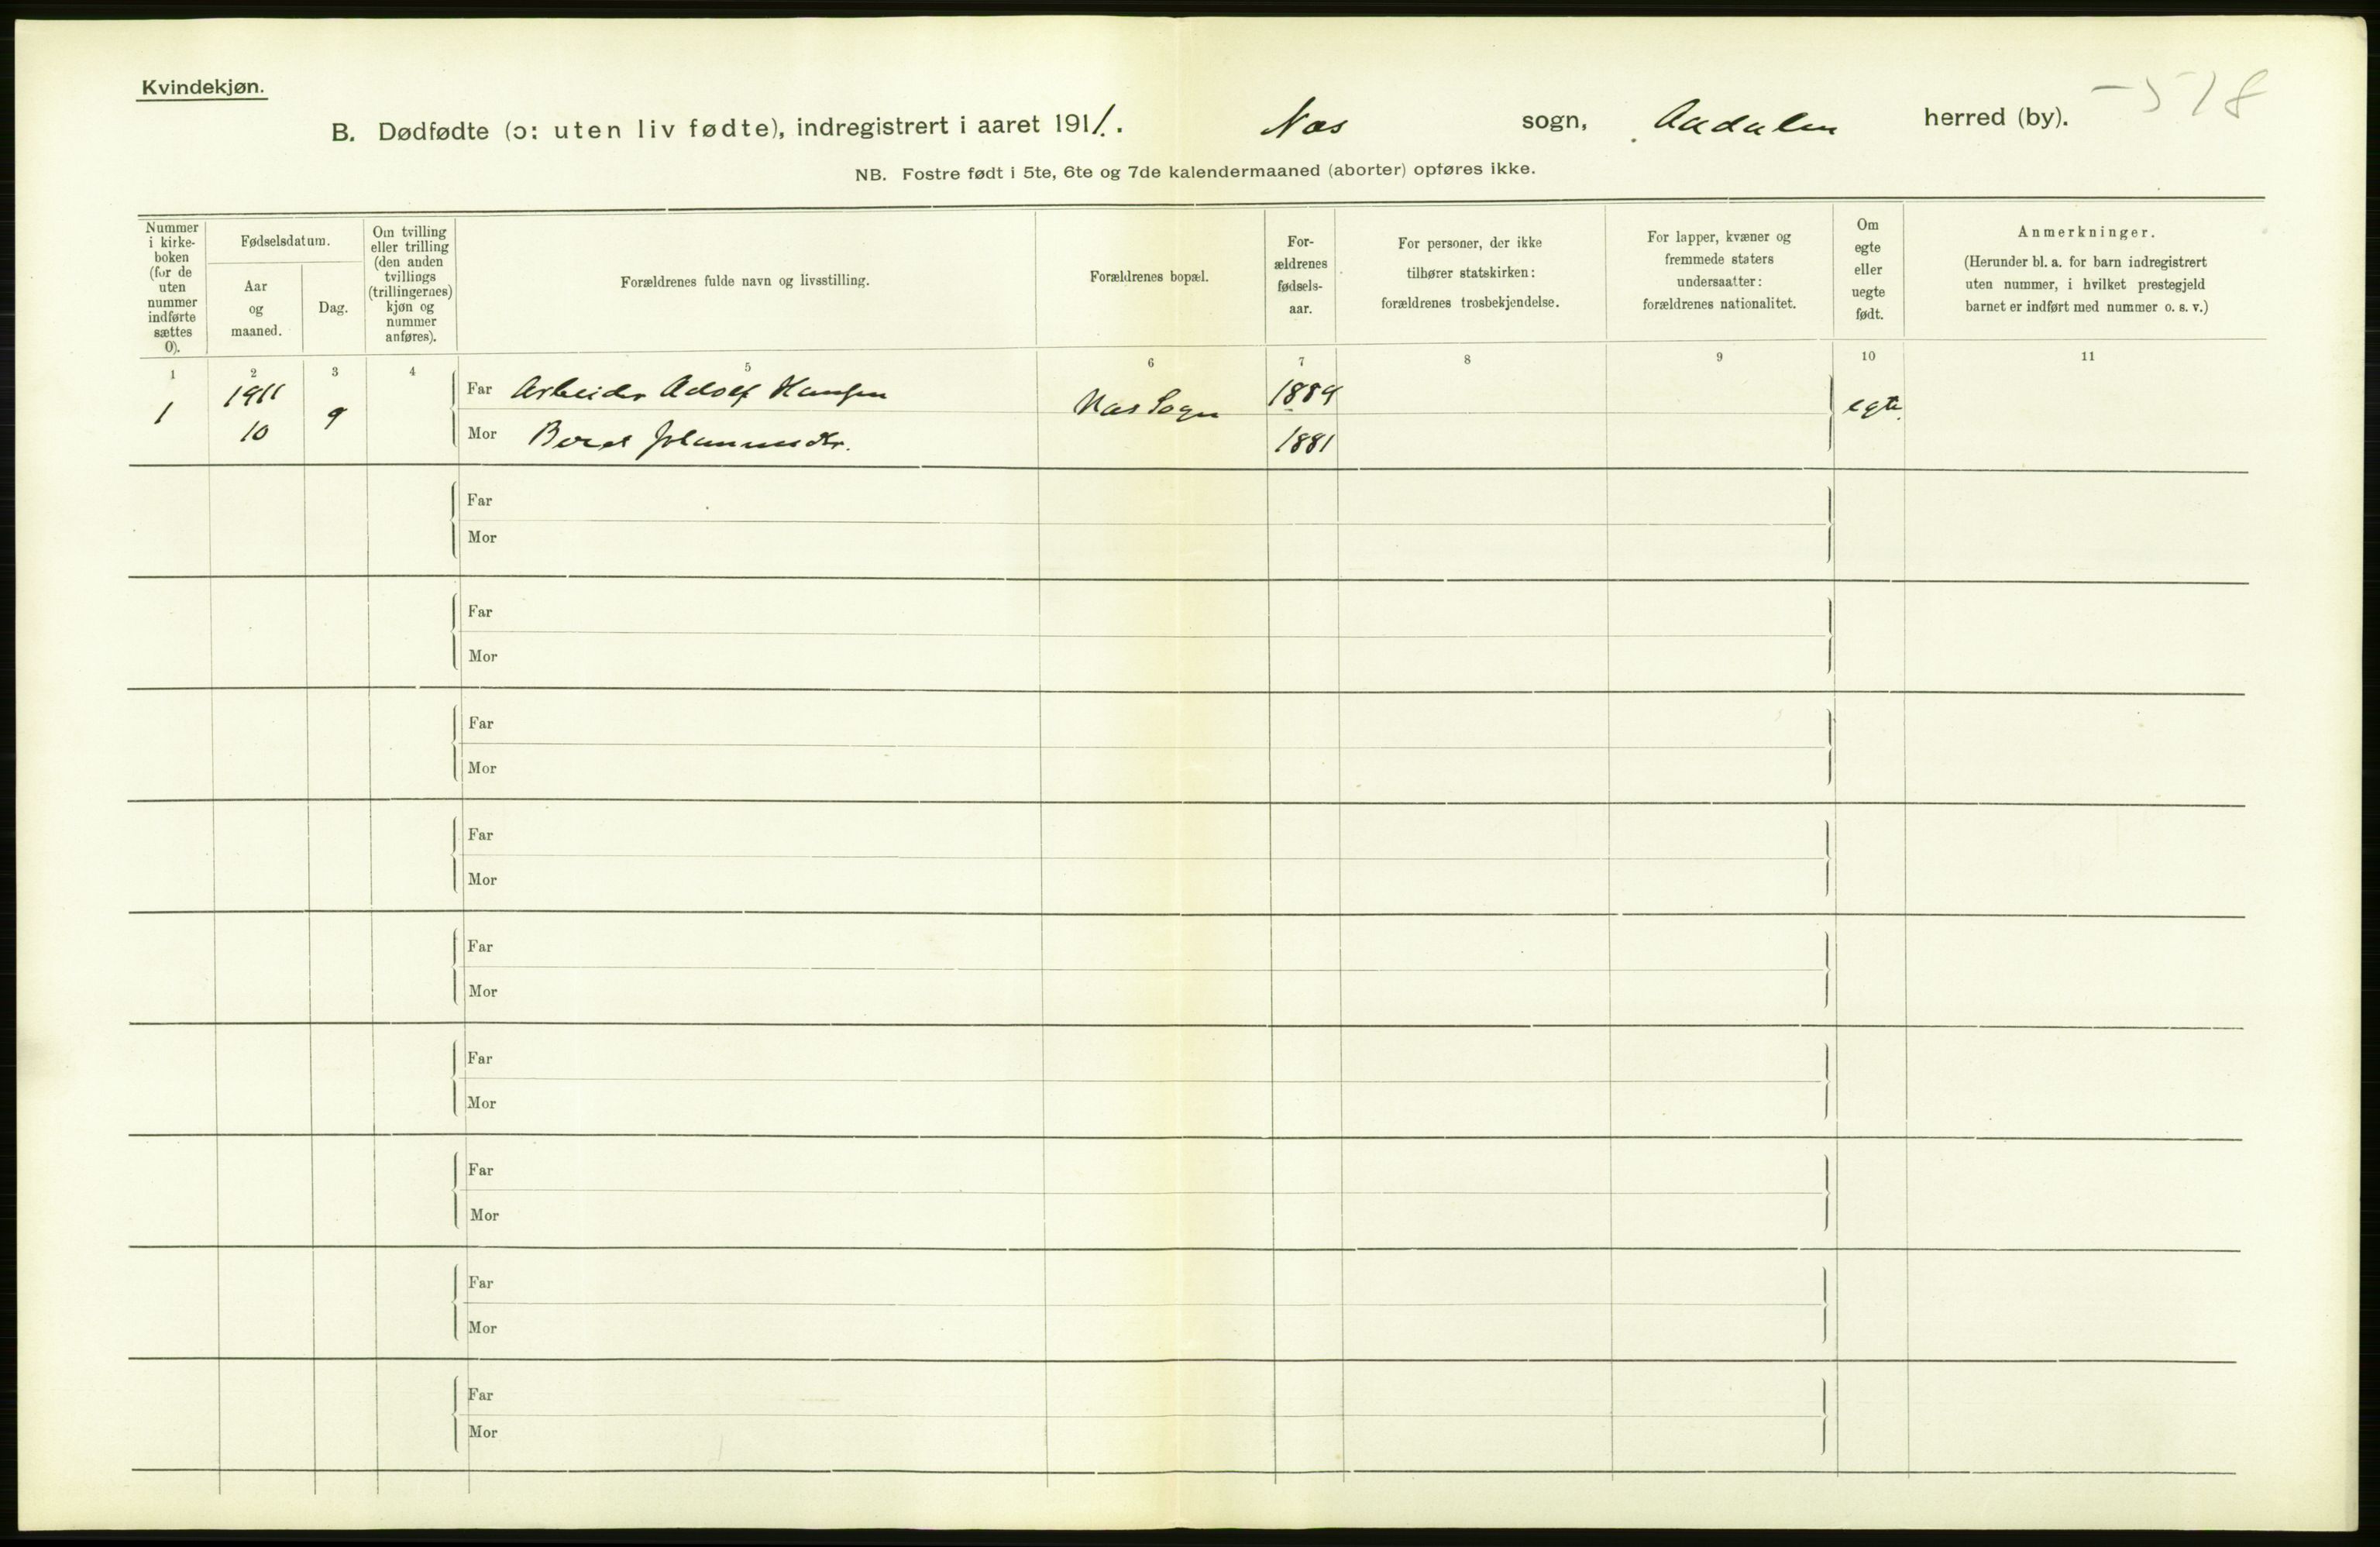 Kvindekjøn.
-518
B. Dødfødte (ɔ: uten liv fødte), indregistrert i aaret 1911. Næs sogn, Aadalen herred (by).
NB. Fostre født i 5te, 6te og 7de kalendermaaned (aborter) opføres ikke.
Nummer i kirke-boken (for de uten nummer indførte sættes 0).
Fødselsdatum.
Aar og maaned.
Dag.
Om tvilling eller trilling (den anden tvillings (trillingernes) kjøn og nummer anføres).
Forældrenes fulde navn og livsstilling.
Forældrenes bopæl.
For-ældrenes fødsels-aar.
For personer, der ikke tilhører statskirken: forældrenes trosbekjendelse.
For lapper, kvæner og fremmede staters undersaatter: forældrenes nationalitet.
Om egte eller uegte født.
Anmerkninger.
(Herunder bl. a. for barn indregistrert uten nummer, i hvilket prestegjeld barnet er indført med nummer o. s. v.)
1 2 3 4 5 6 7 8 9 10 11
1 1911 10 9 Far Arbeider Adolf Hansen Næs Sogn 1884 egte
Mor Beret Johannesdtr. 1881
Far
Mor
Far
Mor
Far
Mor
Far
Mor
Far
Mor
Far
Mor
Far
Mor
Far
Mor
Far
Mor